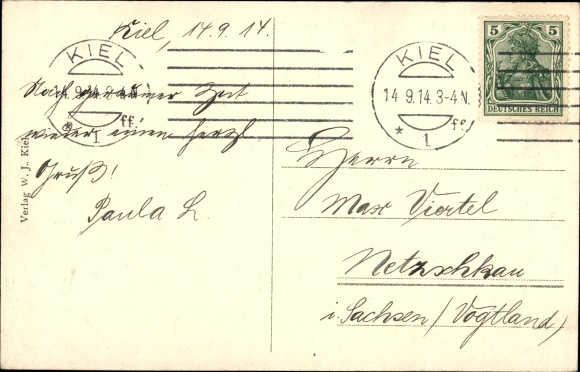 Kiel, 14.9.14.
KIEL
14.9.14.3-4N.
* 1 ff
Nach geraumer Zeit
wieder einen herzl.
Gruß!
Paula L.
Verlag W. J. Kiel
KIEL
14.9.14.3-4N.
* 1 ff
5 5
DEUTSCHES REICH
Herrn
Max Viertel
Netzschkau
i. Sachsen/Vogtland)